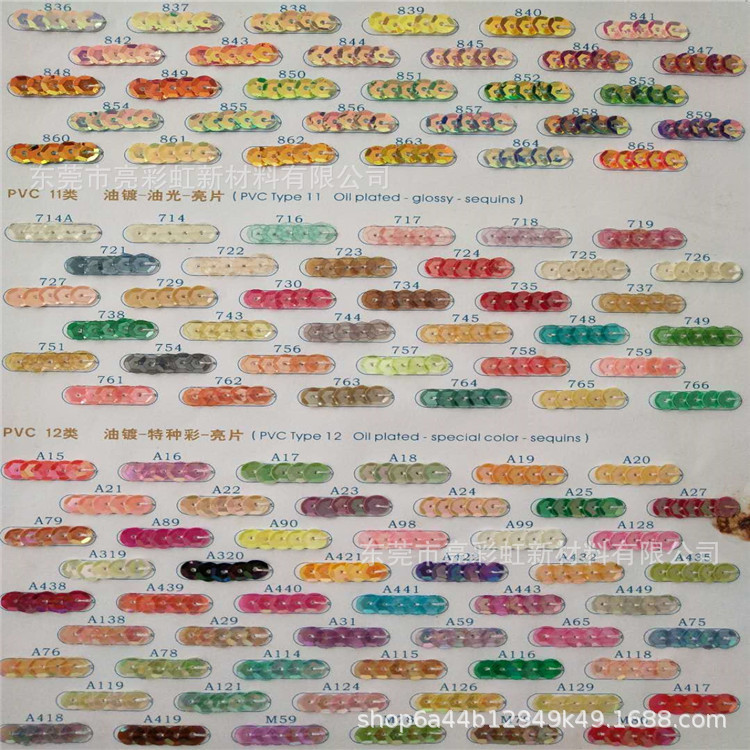 836 837 838 839 840 841
842 843 844 845 846 847
848 849 850 851 852 853
854 855 856 857 858 859
860 861 862 863 864 865
东莞市亮彩虹新材料有限公司
PVC 11类 油镀-油光-亮片 ( PVC Type 11 Oil plated - glossy - sequins )
714A 714 716 717 718 719
721 722 723 724 725 726
727 729 730 734 735 737
738 743 744 745 748 749
751 754 756 757 758 759
761 762 763 764 765 766
PVC 12类 油镀-特种彩-亮片 ( PVC Type 12 Oil plated - special color - sequins )
A15 A16 A17 A18 A19 A20
A21 A22 A23 A24 A25 A27
A79 A89 A90 A98 A99 A128
东莞市亮彩虹新材料有限公司
A319 A320 A421 A432 A435
A438 A439 A440 A441 A443 A449
A138 A29 A31 A59 A65 A75
A76 A78 A114 A115 A116 A118
A119 A121 A124 A126 A131 A417
A418 A419 M59
shop6a44b12949k49.1688.com